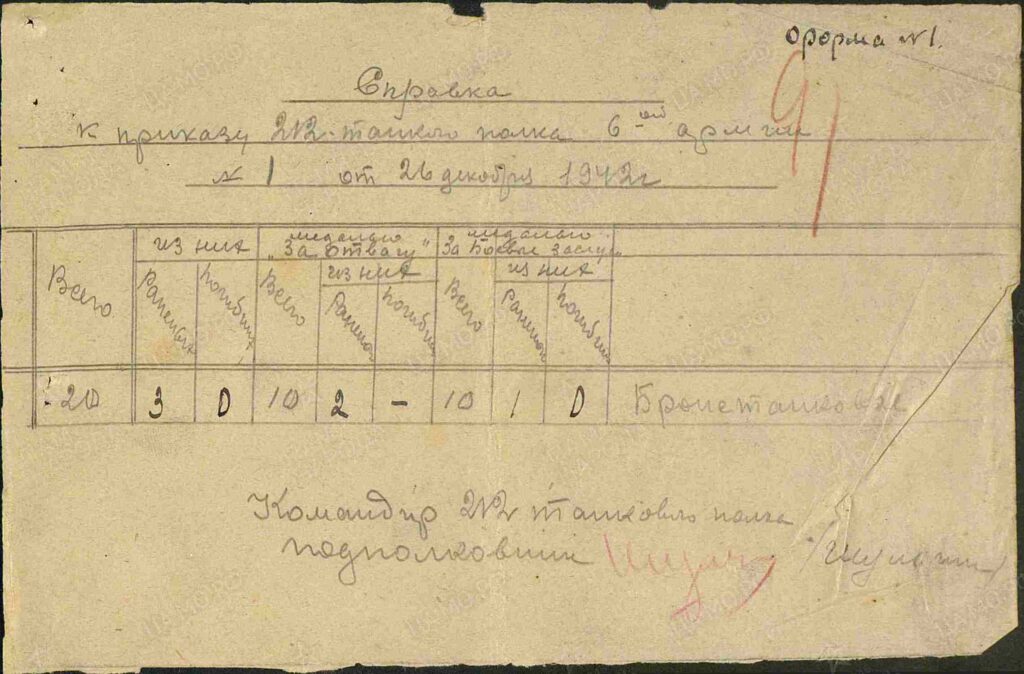 Форма №1.
91
Справка
к приказу 212 танкого полка 6-ой армии
№ 1 от 26 декабря 1942г
Всего из них медалью „За отвагу" медалью За боевые заслуг
Раненых Погибших Всего из них Всего из них
Раненых Погибших Раненых Погибших
20 3 0 10 2 - 10 1 0 Бронетанковые
Командир 212 танковго полка
подполковник